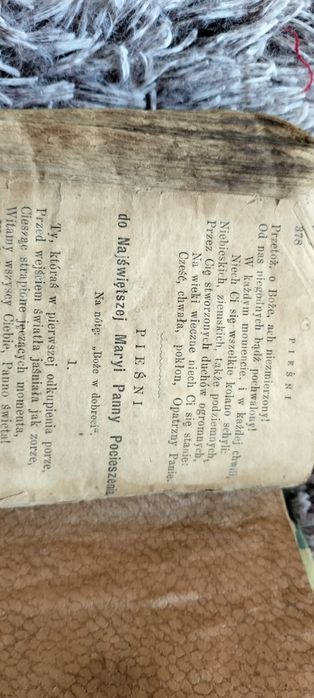 378
PIEŚNI
Przetoż, o Boże, ach niezmierzony!
Od nas niegodnych bądź pochwalony!
W każdym momencie, i w każdej chwili,
Niech Ci się wszelkie kolano schyli:
Niebieskich, ziemskich, także podziemnych,
Przez Cię stworzonych duchów ogromnych,
Na wieki wieczne niech Ci się stanie:
Cześć, chwała, pokłon, Opatrzny Panie.
PIEŚNI
do Najświętszej Maryi Panny Pocieszenia
Na notę: „Boże w dobroci“.
1.
Ty, któraś w pierwszej odkupienia porze,
Przed wejściem światła jaśniała jak zorze,
Ciesząc strapione jęczących momenta,
Witamy wszyscy Ciebie, Panno święta!